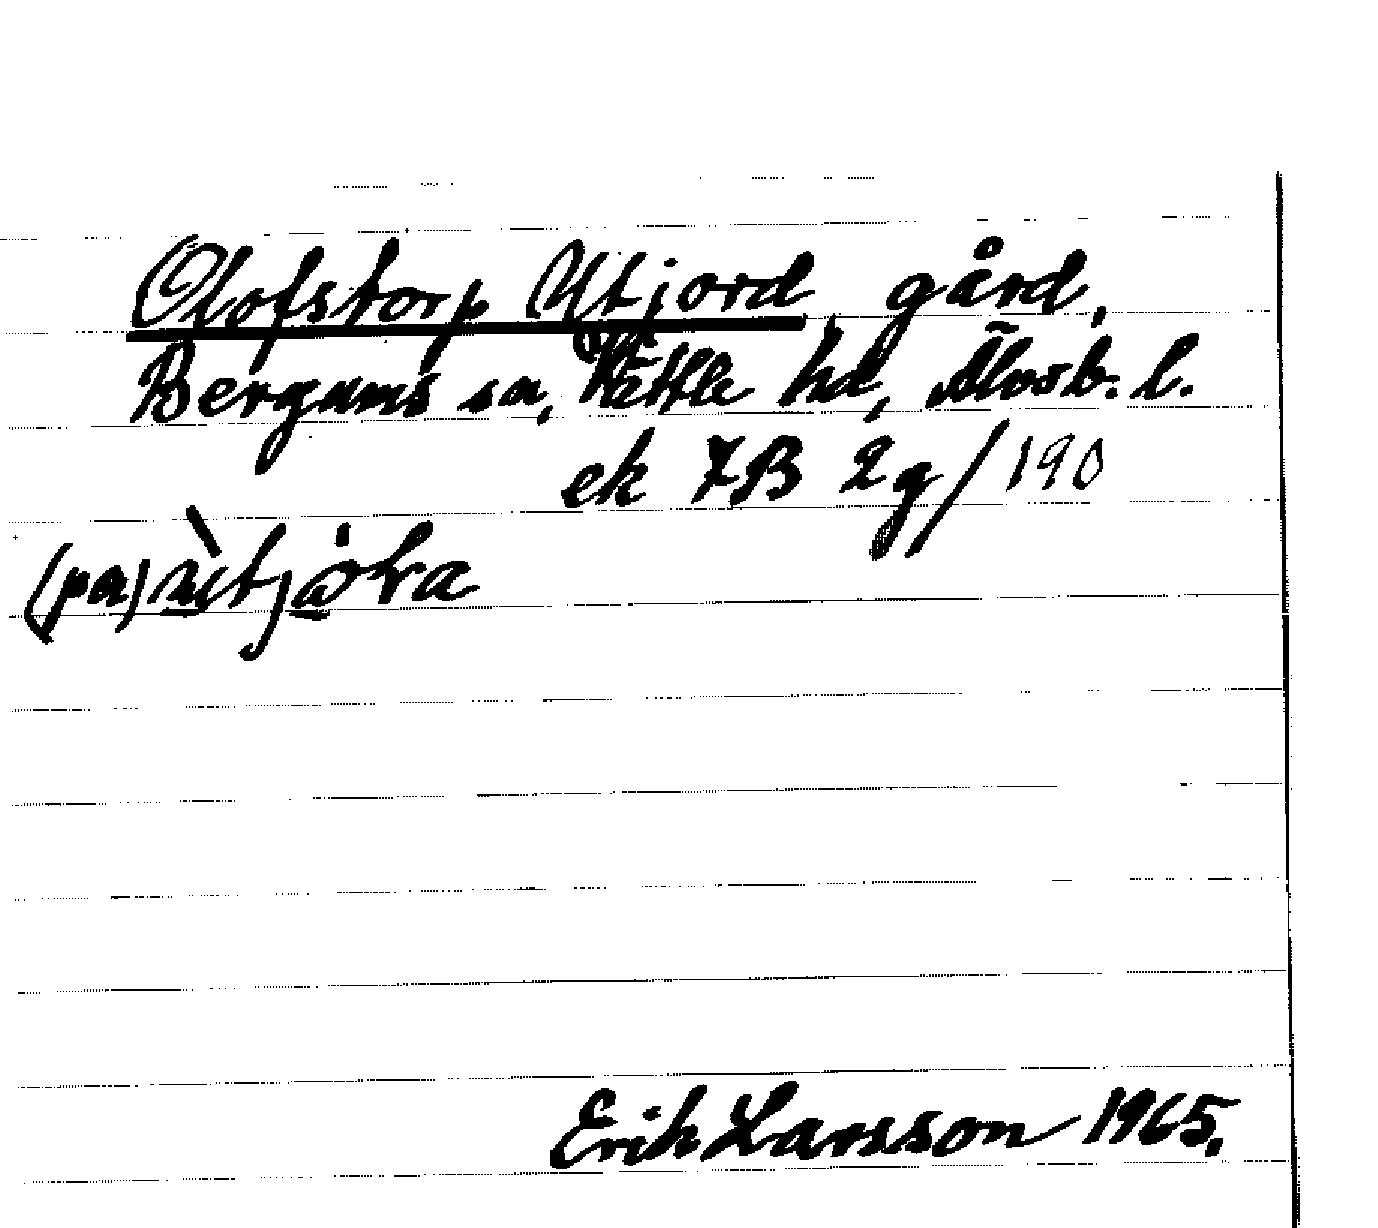 Olofstorp Utjord, gård,
Bergums sn, Vättle hd, Älvsb. l.
ek 7B 2g/190
(pa) ùtjo̍ɽa
Erik Larsson 1965.